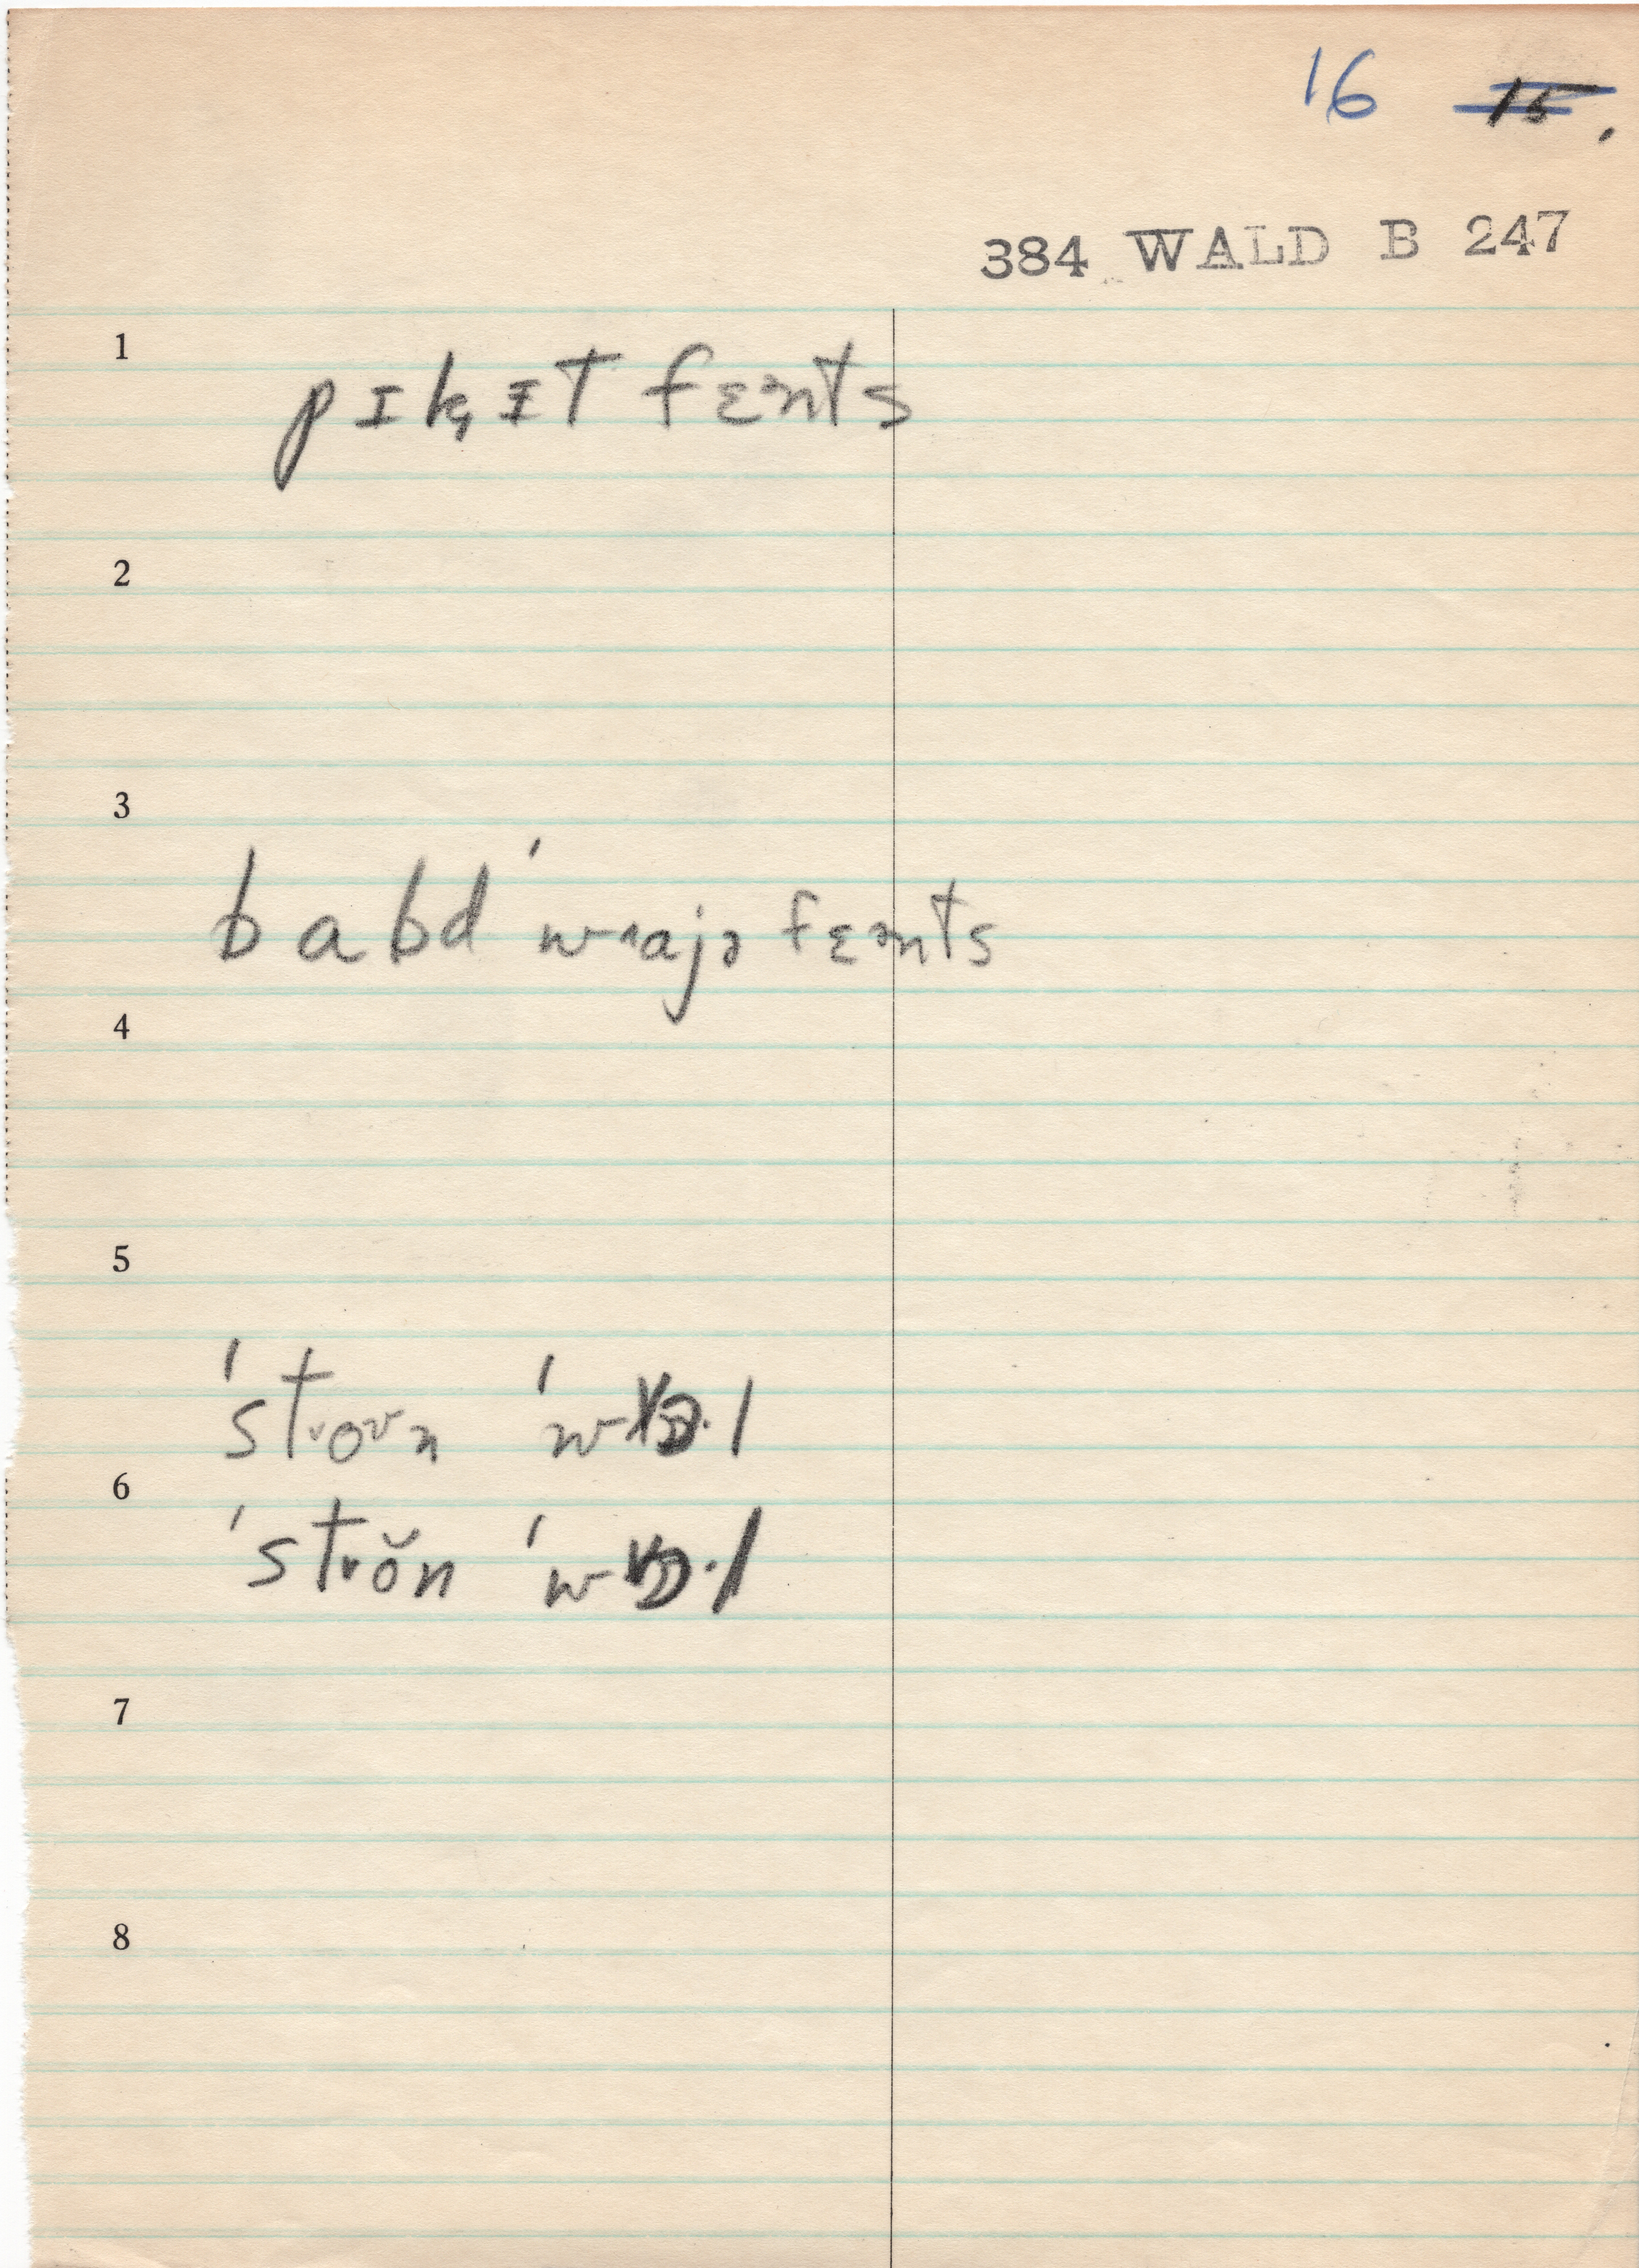 16 15.
384 WALD B 247
1
pɪk̟ɪt fɛənts
2
3
babd ˈwʌajə fɛənts
4
5
ˈstroʊn
6
ˈstrŏn
7
8